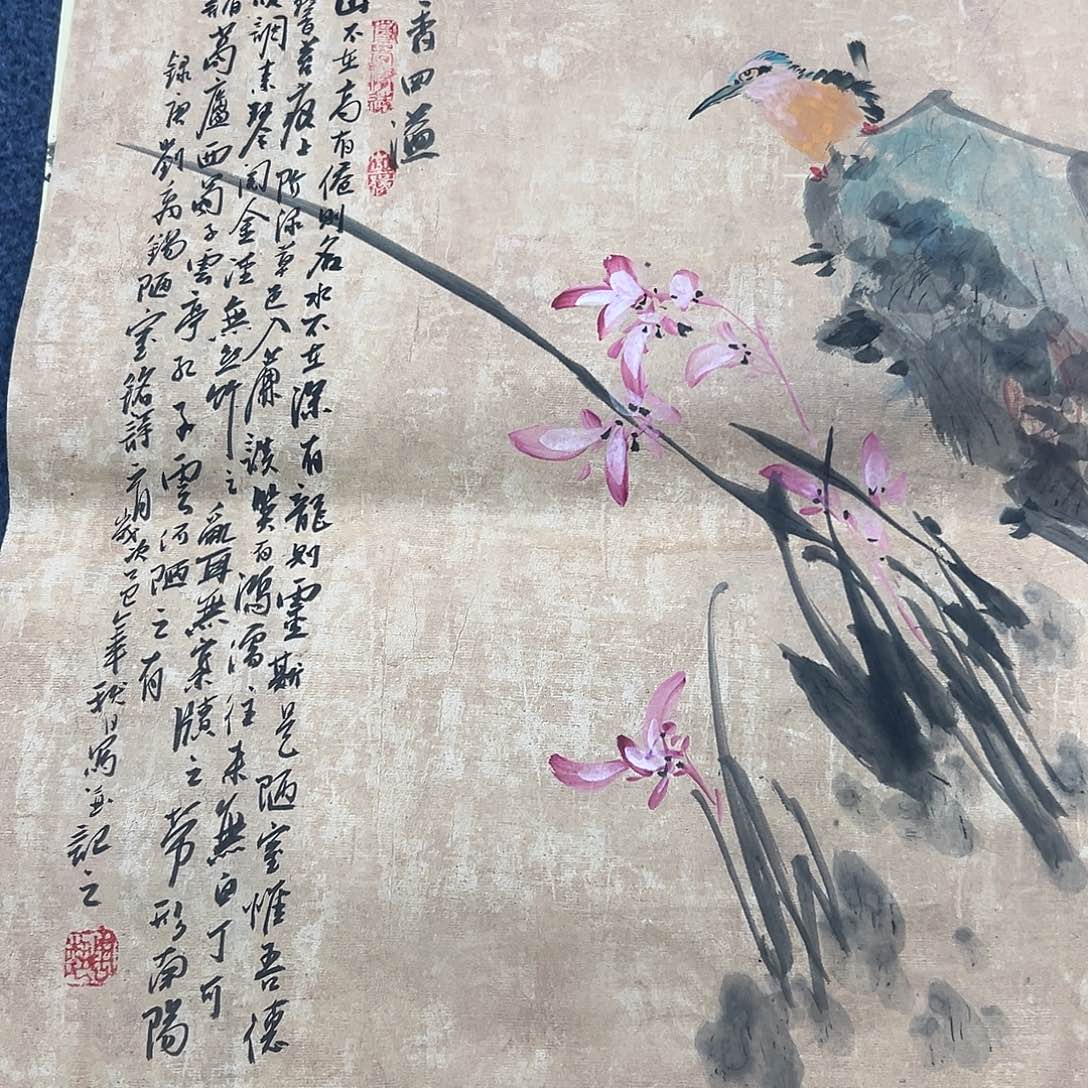 香四溢
山不在高有僊則名水不在深有龍則靈斯是陋室惟吾德
馨苔痕上阶绿草色入簾談笑有鴻儒往来無白丁可
調素琴閲金經無丝竹之亂耳無案牘之劳形南陽
諸葛廬西蜀子雲亭孔子雲何陋之有
録唐劉禹錫陋室銘詩 歲次乙巳年秋日寫並記之